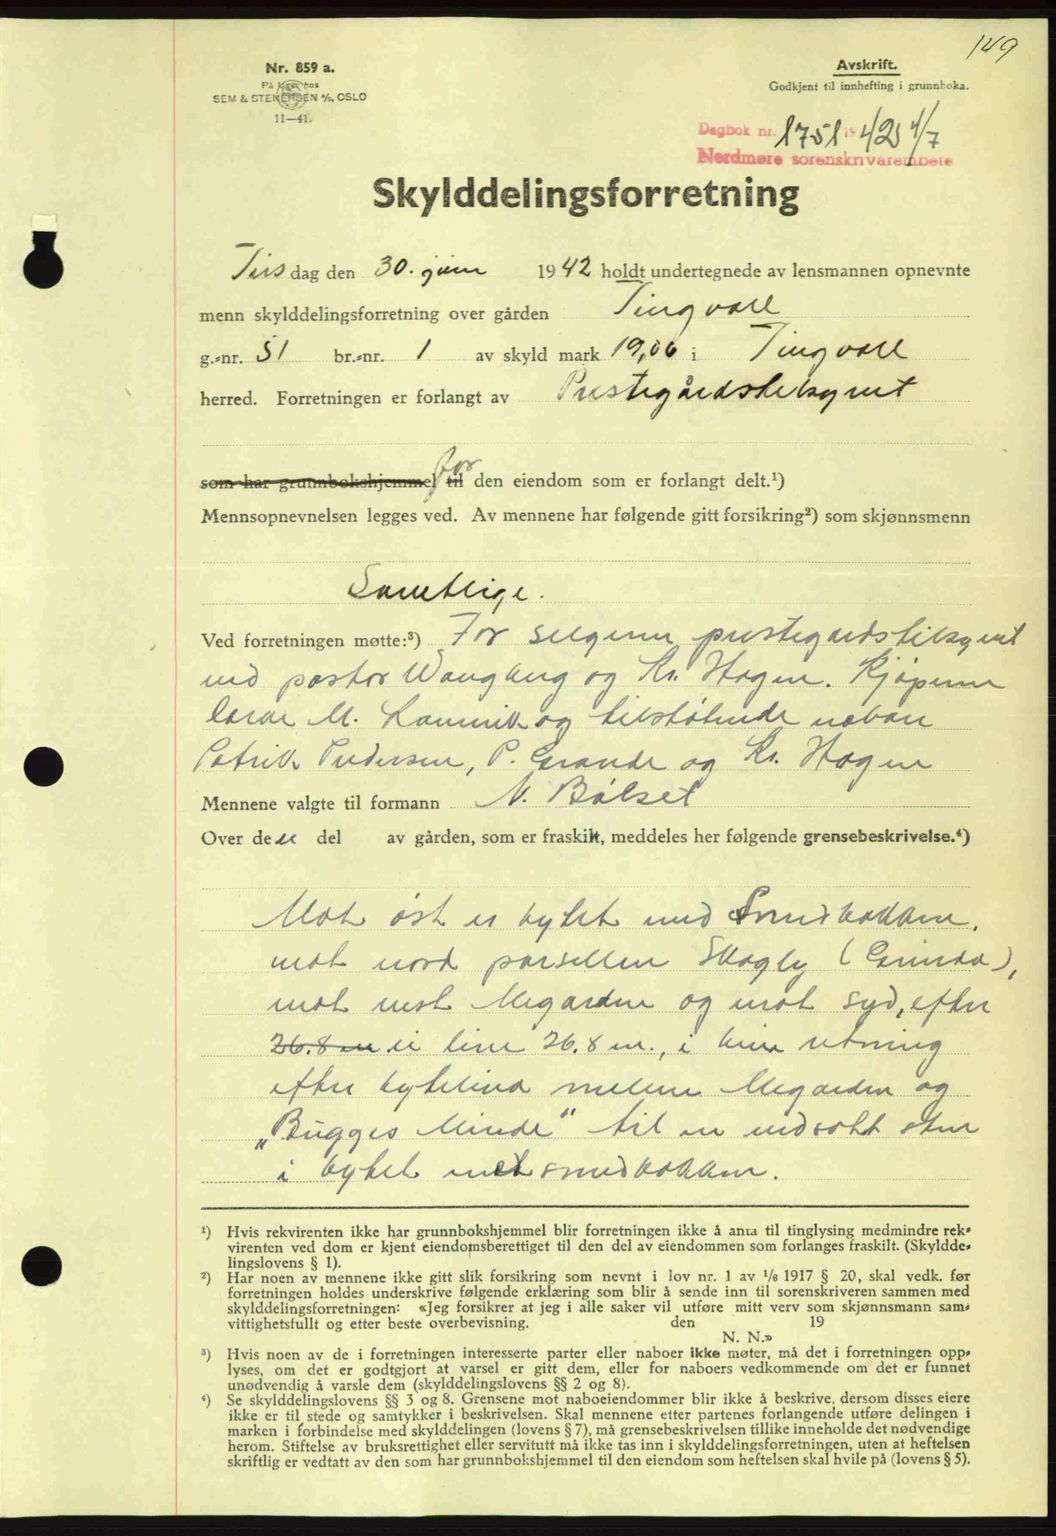 149
Nr. 859 a.
På lager hos
SEM & STENERSEN A/S, OSLO
11—41.
Avskrift.
Godkjent til innhefting i grunnboka.
Dagbok nr. 1751 19 42 4/7
Nordmøre sorenskriverembete
Skylddelingsforretning
Tirsdag den 30. juni 1942 holdt undertegnede av lensmannen opnevnte
menn skylddelingsforretning over gården Tingvoll
g.-nr. 51 br.-nr. 1 av skyld mark 19,06 i Tingvoll
herred. Forretningen er forlangt av Prestegårdstilsynet
som har grunnbokshjemmel til for den eiendom som er forlangt delt.¹)
Mennsopnevnelsen legges ved. Av mennene har følgende gitt forsikring²) som skjønnsmenn
Samtlige.
Ved forretningen møtte:³) For selgeren prestegårdstilsynet
ved pastor og Kr. Hagen. Kjøperen
M. og tilstøtende naboer
Patrik Pedersen, P. Grande og Kr. Hagen
Mennene valgte til formann N. Bølset
Over den del av gården, som er fraskilt, meddeles her følgende grensebeskrivelse.⁴)
Mot øst er bytet ved Smedbakken,
mot nord parsellen Skogly (Grinda),
mot vest Megarden og mot syd, efter
26.8 m ei line 26.8 m., i retning
efter bytelina mellem Megarden og
„Bugges Minde" til en nedsatt sten
i bytet mot smedbakken.
¹) Hvis rekvirenten ikke har grunnbokshjemmel blir forretningen ikke å anta til tinglysing medmindre rek-
virenten ved dom er kjent eiendomsberettiget til den del av eiendommen som forlanges fraskilt. (Skyldde-
lingslovens § 1).
²) Har noen av mennene ikke gitt slik forsikring som nevnt i lov nr. 1 av 1/6 1917 § 20, skal vedk. før
forretningen holdes underskrive følgende erklæring som blir å sende inn til sorenskriveren sammen med
skylddelingsforretningen: «Jeg forsikrer at jeg i alle saker vil utføre mitt verv som skjønnsmann sam-
vittighetsfullt og etter beste overbevisning. den 19
N. N.»
³) Hvis noen av de i forretningen interesserte parter eller naboer ikke møter, må det i forretningen opp-
lyses, om det er godtgjort at varsel er gitt dem, eller for naboers vedkommende om det er funnet
unødvendig å varsle dem (skylddelingslovens §§ 2 og 8).
⁴) Se skylddelingslovens §§ 3 og 8. Grensene mot naboeiendommer blir ikke å beskrive, dersom disses eiere
ikke er til stede og samtykker i beskrivelsen. Skal mennene etter partenes forlangende utføre delingen i
marken i forbindelse med skylddelingen (lovens § 7), må grensebeskrivelsen tillike inneholde det nødvendige
herom. Stiftelse av bruksrettighet eller servitutt må ikke tas inn i skylddelingsforretningen, uten at heftelsen
skriftlig er vedtatt av den som har grunnbokshjemmel til den eiendom som heftelsen skal hvile på (lovens § 5).